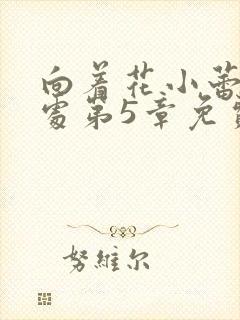 向着花小蕾
处第5章免
努维尔